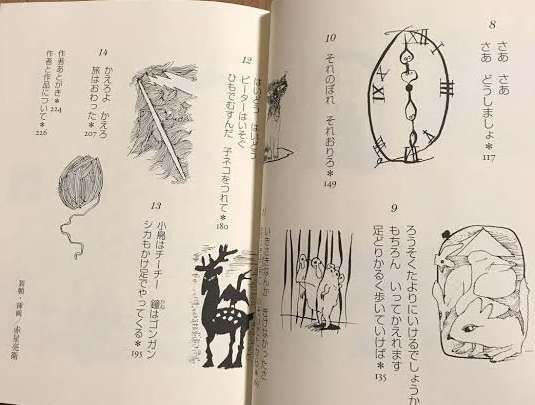 8
さあ さあ
さあ どうしましょ＊117
9
ろうそくたよりにいけるでしょうか
もちろん いってかえれます
足どりかるく歩いていけば＊135
10
それのぼれ それおりろ＊149
いきさきなんか きけなかったさ
12
はいどう はいどう
ピーターはいそぐ
ひもでむすんだ 子ネコをつれて＊180
13
小鳥はチーチー 鐘はゴンガン
かね
シカもかけ足でやってくる＊195
14
かえろよ かえろ
旅はおわった＊207
作者あとがき＊224
作者と作品について＊226
装幀・挿画／赤星亮衛
XII
III
XI